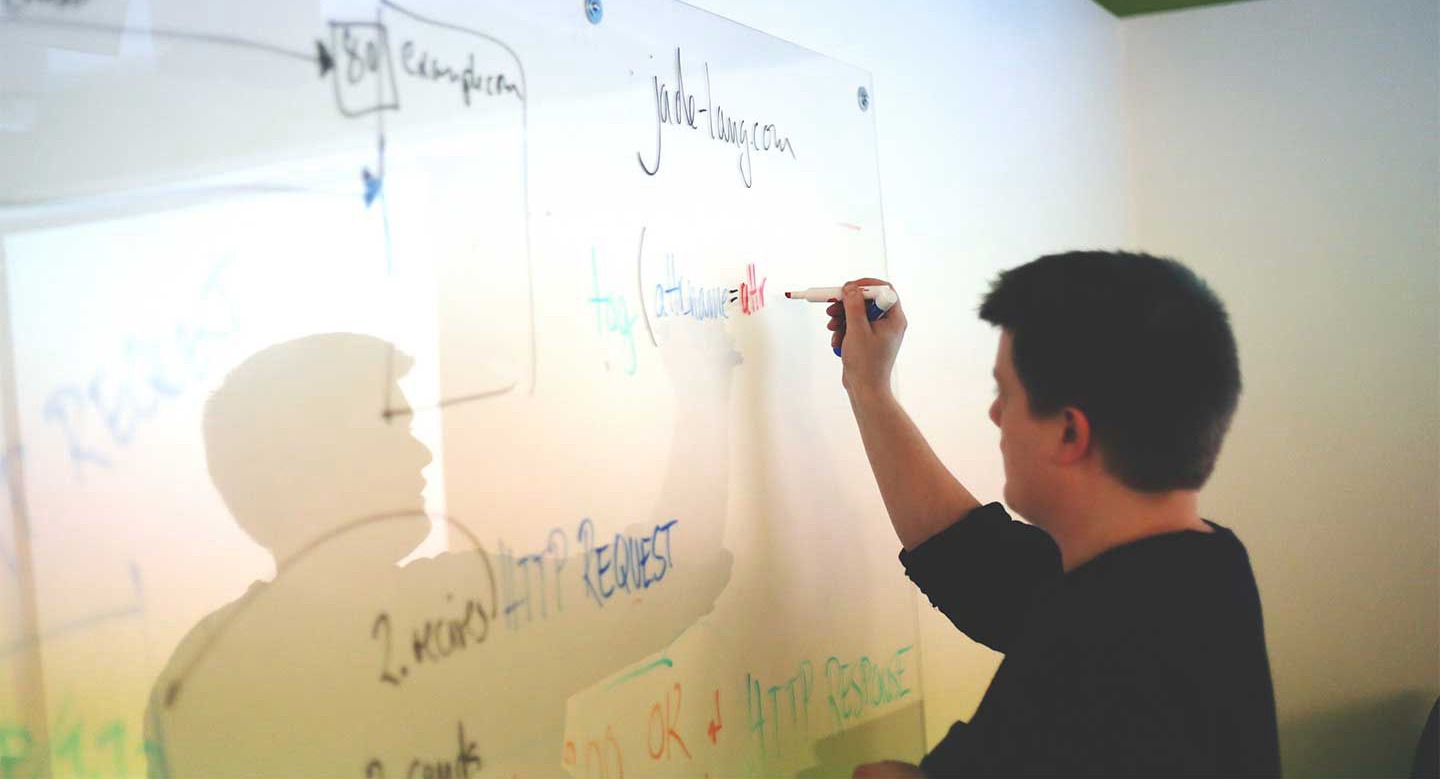 80 example.com
jade-lang.com
tag(attrname=attr
REQUEST
HTTP REQUEST
2. recives
OK ↲ HTTP RESPONSE